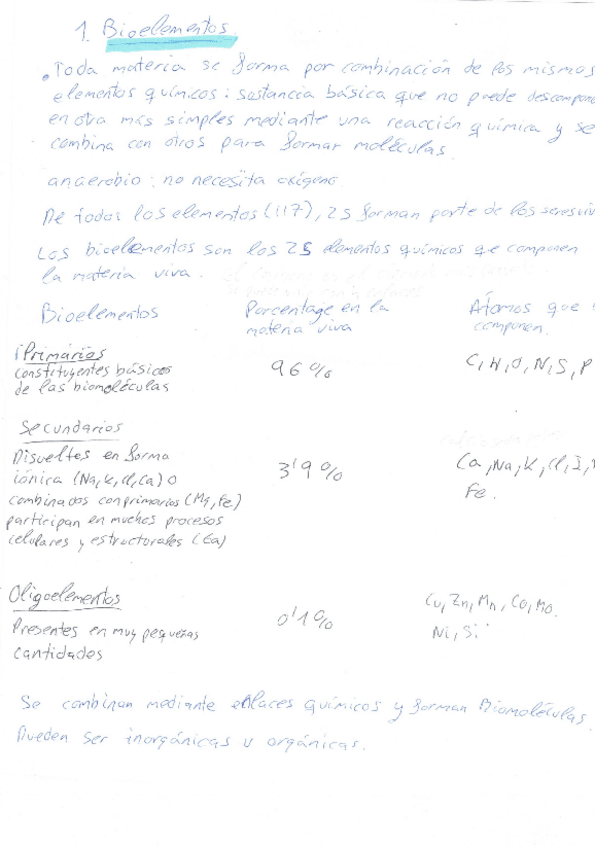 1. Bioelementos.
Toda materia se forma por combinación de los mismos
elementos químicos: sustancia básica que no puede descompone
en otra más simples mediante una reacción química y se
combina con otros para formar moléculas.
anaerobio: no necesita oxígeno
De todos los elementos (117), 25 forman parte de los seres viv
Los bioelementos son los 25 elementos químicos que componen
la materia viva.
Bioelementos Porcentage en la Átomos que
materia viva componen.
Primarios
constituyentes básicos 96% C, H, O, N, S, P
de las biomoléculas
Secundarios
Disueltos en forma
iónica (Na, K, Cl, Ca) o 3'9% Ca, Na, K, Cl, I,
combinados con primarios (Mg, Fe) Fe.
participan en muchos procesos
celulares y estructorales (Ca)
Oligoelementos Cu, Zn, Mn, Co, Mo.
Presentes en muy pequeñas 0'1% Ni, Si
cantidades
Se combinan mediante enlaces químicos y forman Biomoléculas.
Pueden ser inorgánicas u orgánicas.